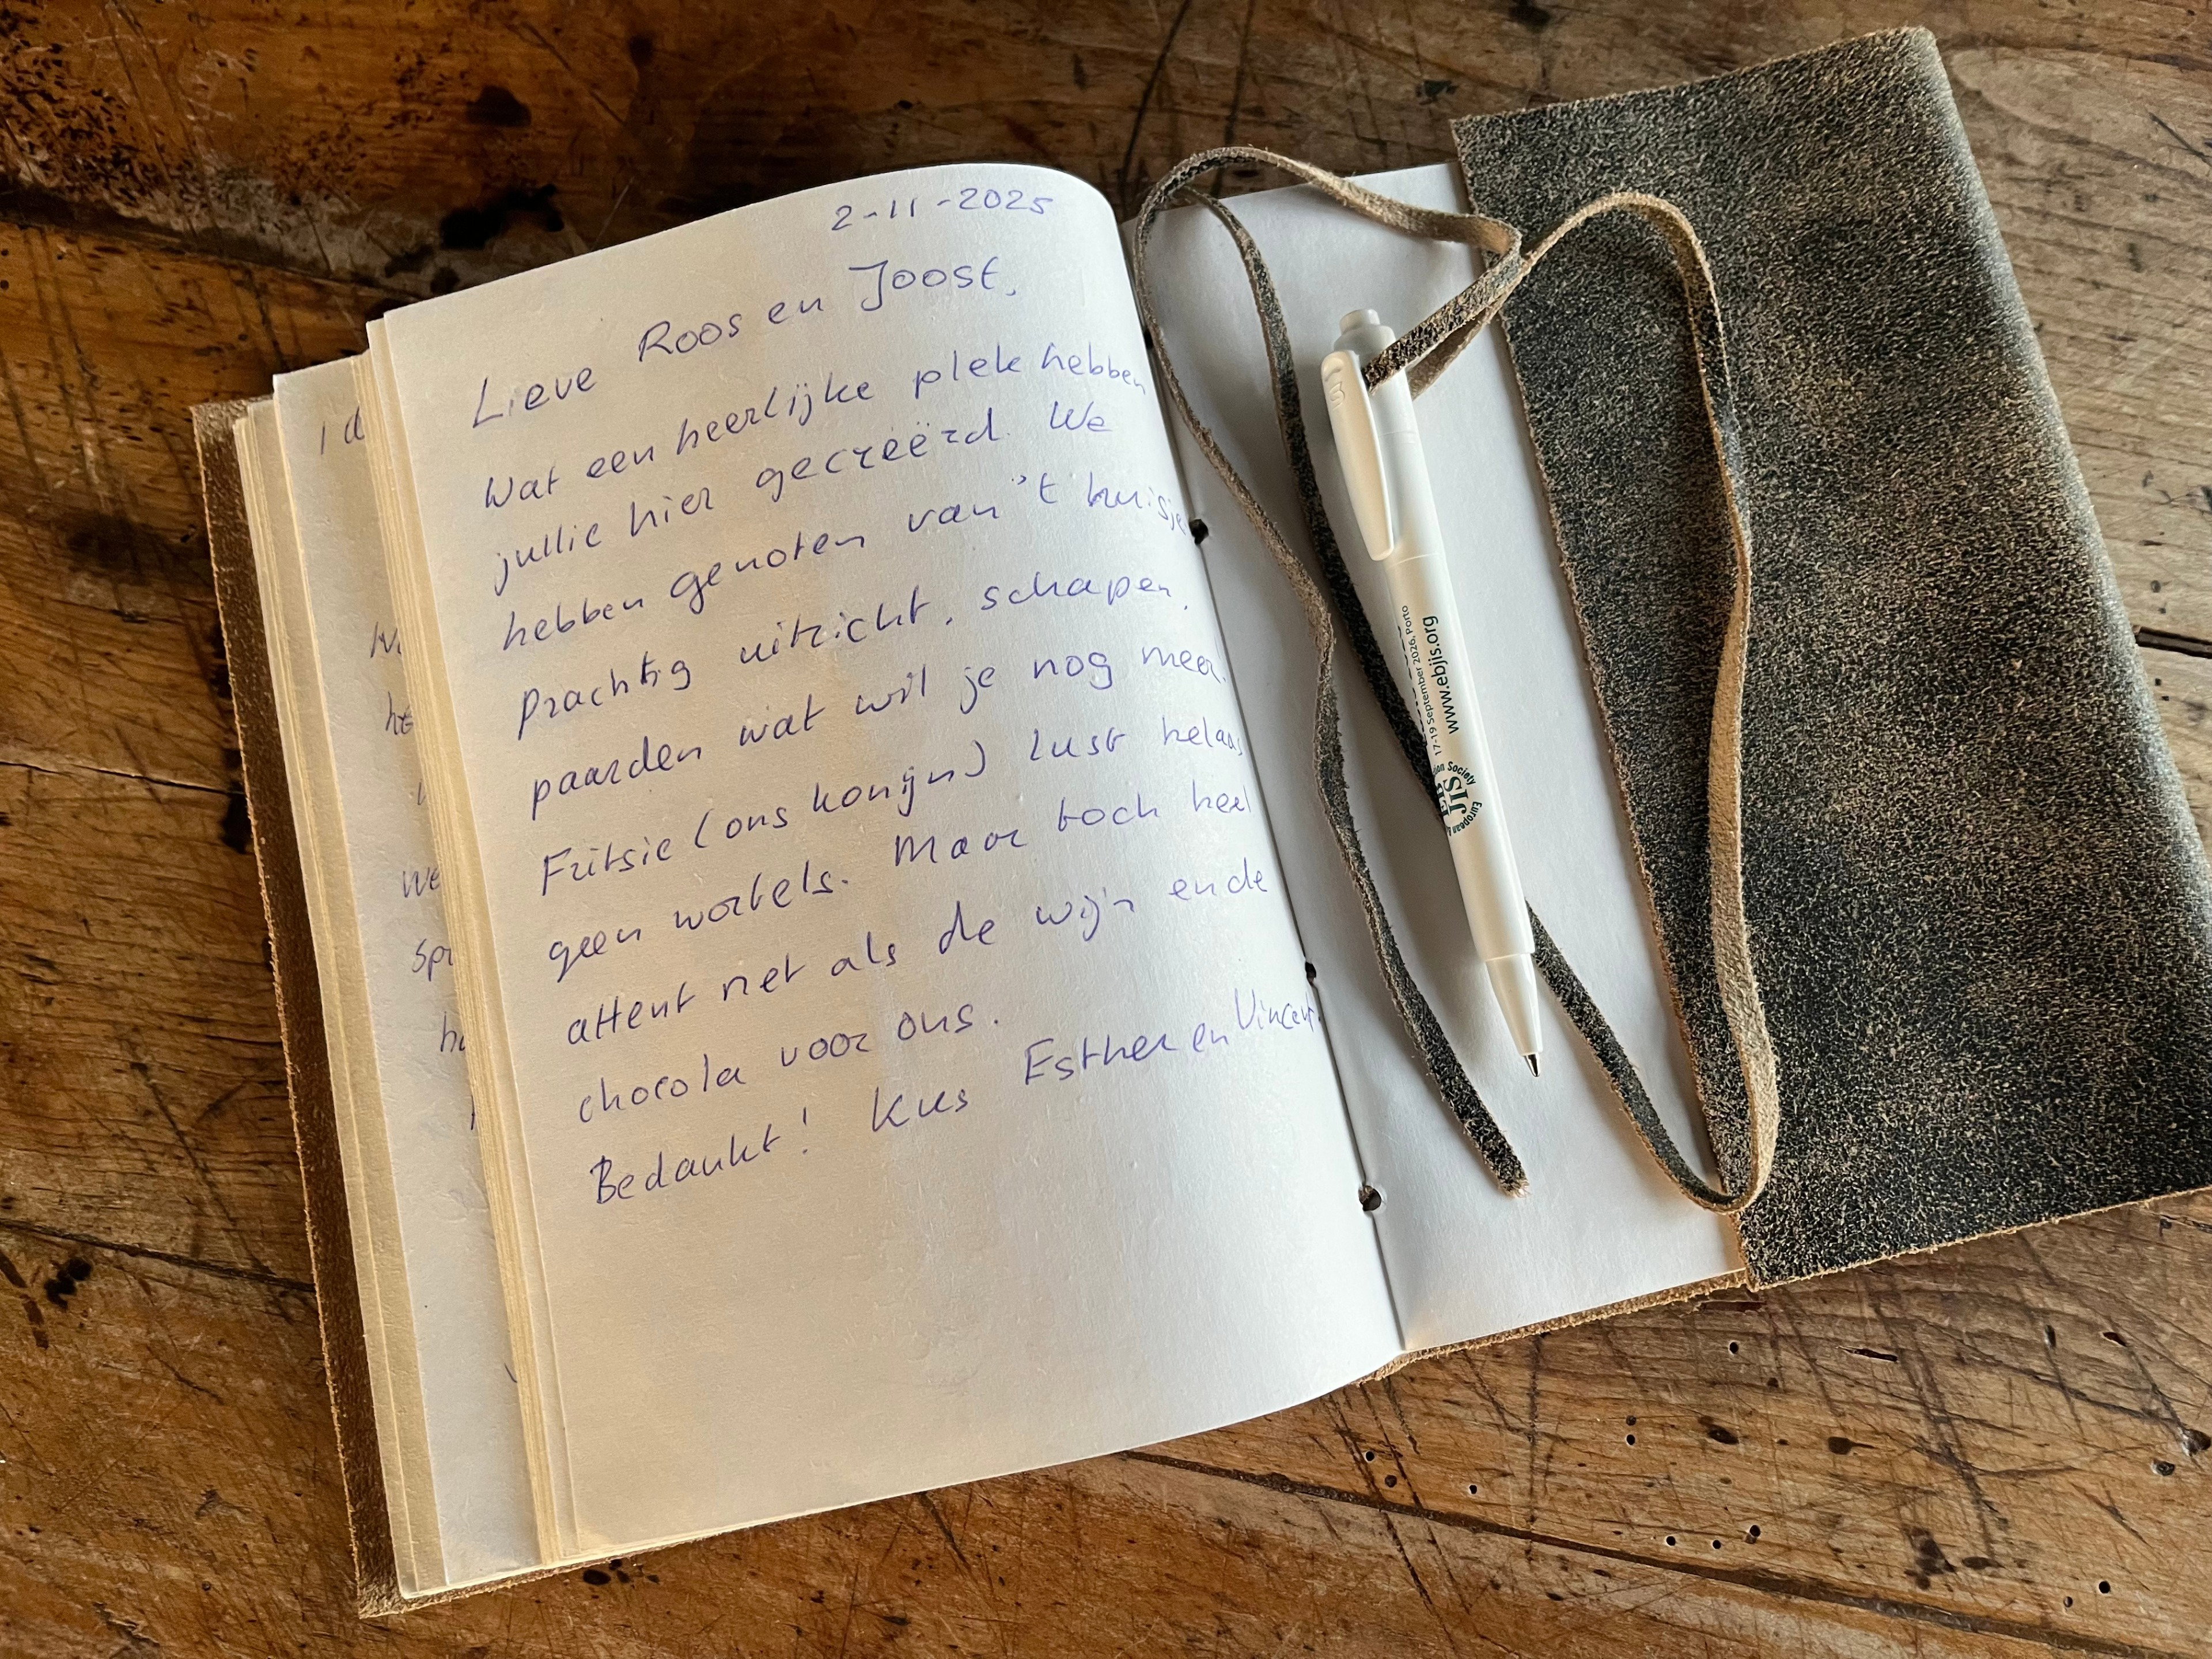 2-11-2025
Lieve Roos en Joost,
Wat een heerlijke plek hebben
jullie hier gecreëerd. We
hebben genoten van 't huisje
prachtig uitzicht, schapen,
paarden wat wil je nog meer.
Fritsie (ons konijn) lust helaas
geen wortels. Maar toch heel
attent net als de wijn en de
chocola voor ons.
Bedankt! Kus Esther en Vincent.
17-19 September 2026, Porto
www.ebjis.org
European
Society